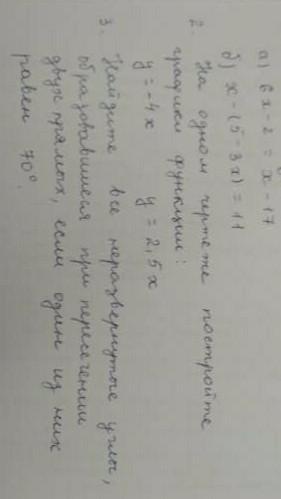 а) 6x - 2 = x - 17
б) x - (5 - 3x) = 11
2. На одном чертеже постройте
графики функции:
y = -4x y = 2,5x
3. Найдите все неразвернутые углы,
образовавшиеся при пересечении
двух прямых, если один из них
равен 70°.